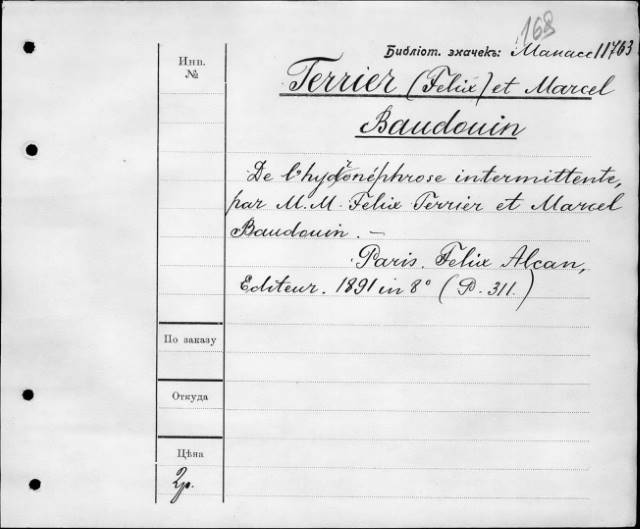 168
Библіот. значекъ: Манасс 11763
Инв. №
Terrier (Felix) et Marcel
Baudouin
De l'hydronéphrose intermittente,
par M.M. Felix Terrier et Marcel
Baudouin. —
Paris. Felix Alcan,
Editeur. 1891 in 8° (P. 311.)
По заказу
Откуда
Цѣна
2р.